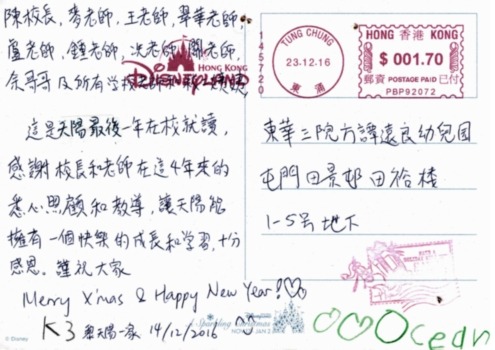 陳校長，麥老師，王老師，翠華老師，
盧老師，鍾老師，冼老師，關老師，
余哥哥及所有學校
這是天陽最後一年在校就讀，
感謝校長和老師在這4年來的
悉心照顧和教導，讓天陽能
擁有一個快樂的成長和學習，十分
感恩。謹祝大家
Merry X'mas & Happy New Year!
K3 天陽一家 14/12/2016
© Disney
HONG KONG
DISNEYLAND
Sparkling Christmas
1457
TUNG CHUNG
23.12.16
東涌
HONG 香港 KONG
$ 001.70
郵資 POSTAGE PAID 已付
PBP92072
東華三院方譚遠良幼兒園
屯門田景邨田裕樓
1-5号地下
Ocean